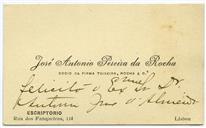 José Antonio Pereira da Rocha
SOCIO DA FIRMA TEIXEIRA, ROCHA & C.ª
Felicita o Exmo Sr Dr
Antonio José d'Almeida
ESCRIPTORIO
Rua dos Fanqueiros, 114
Lisboa